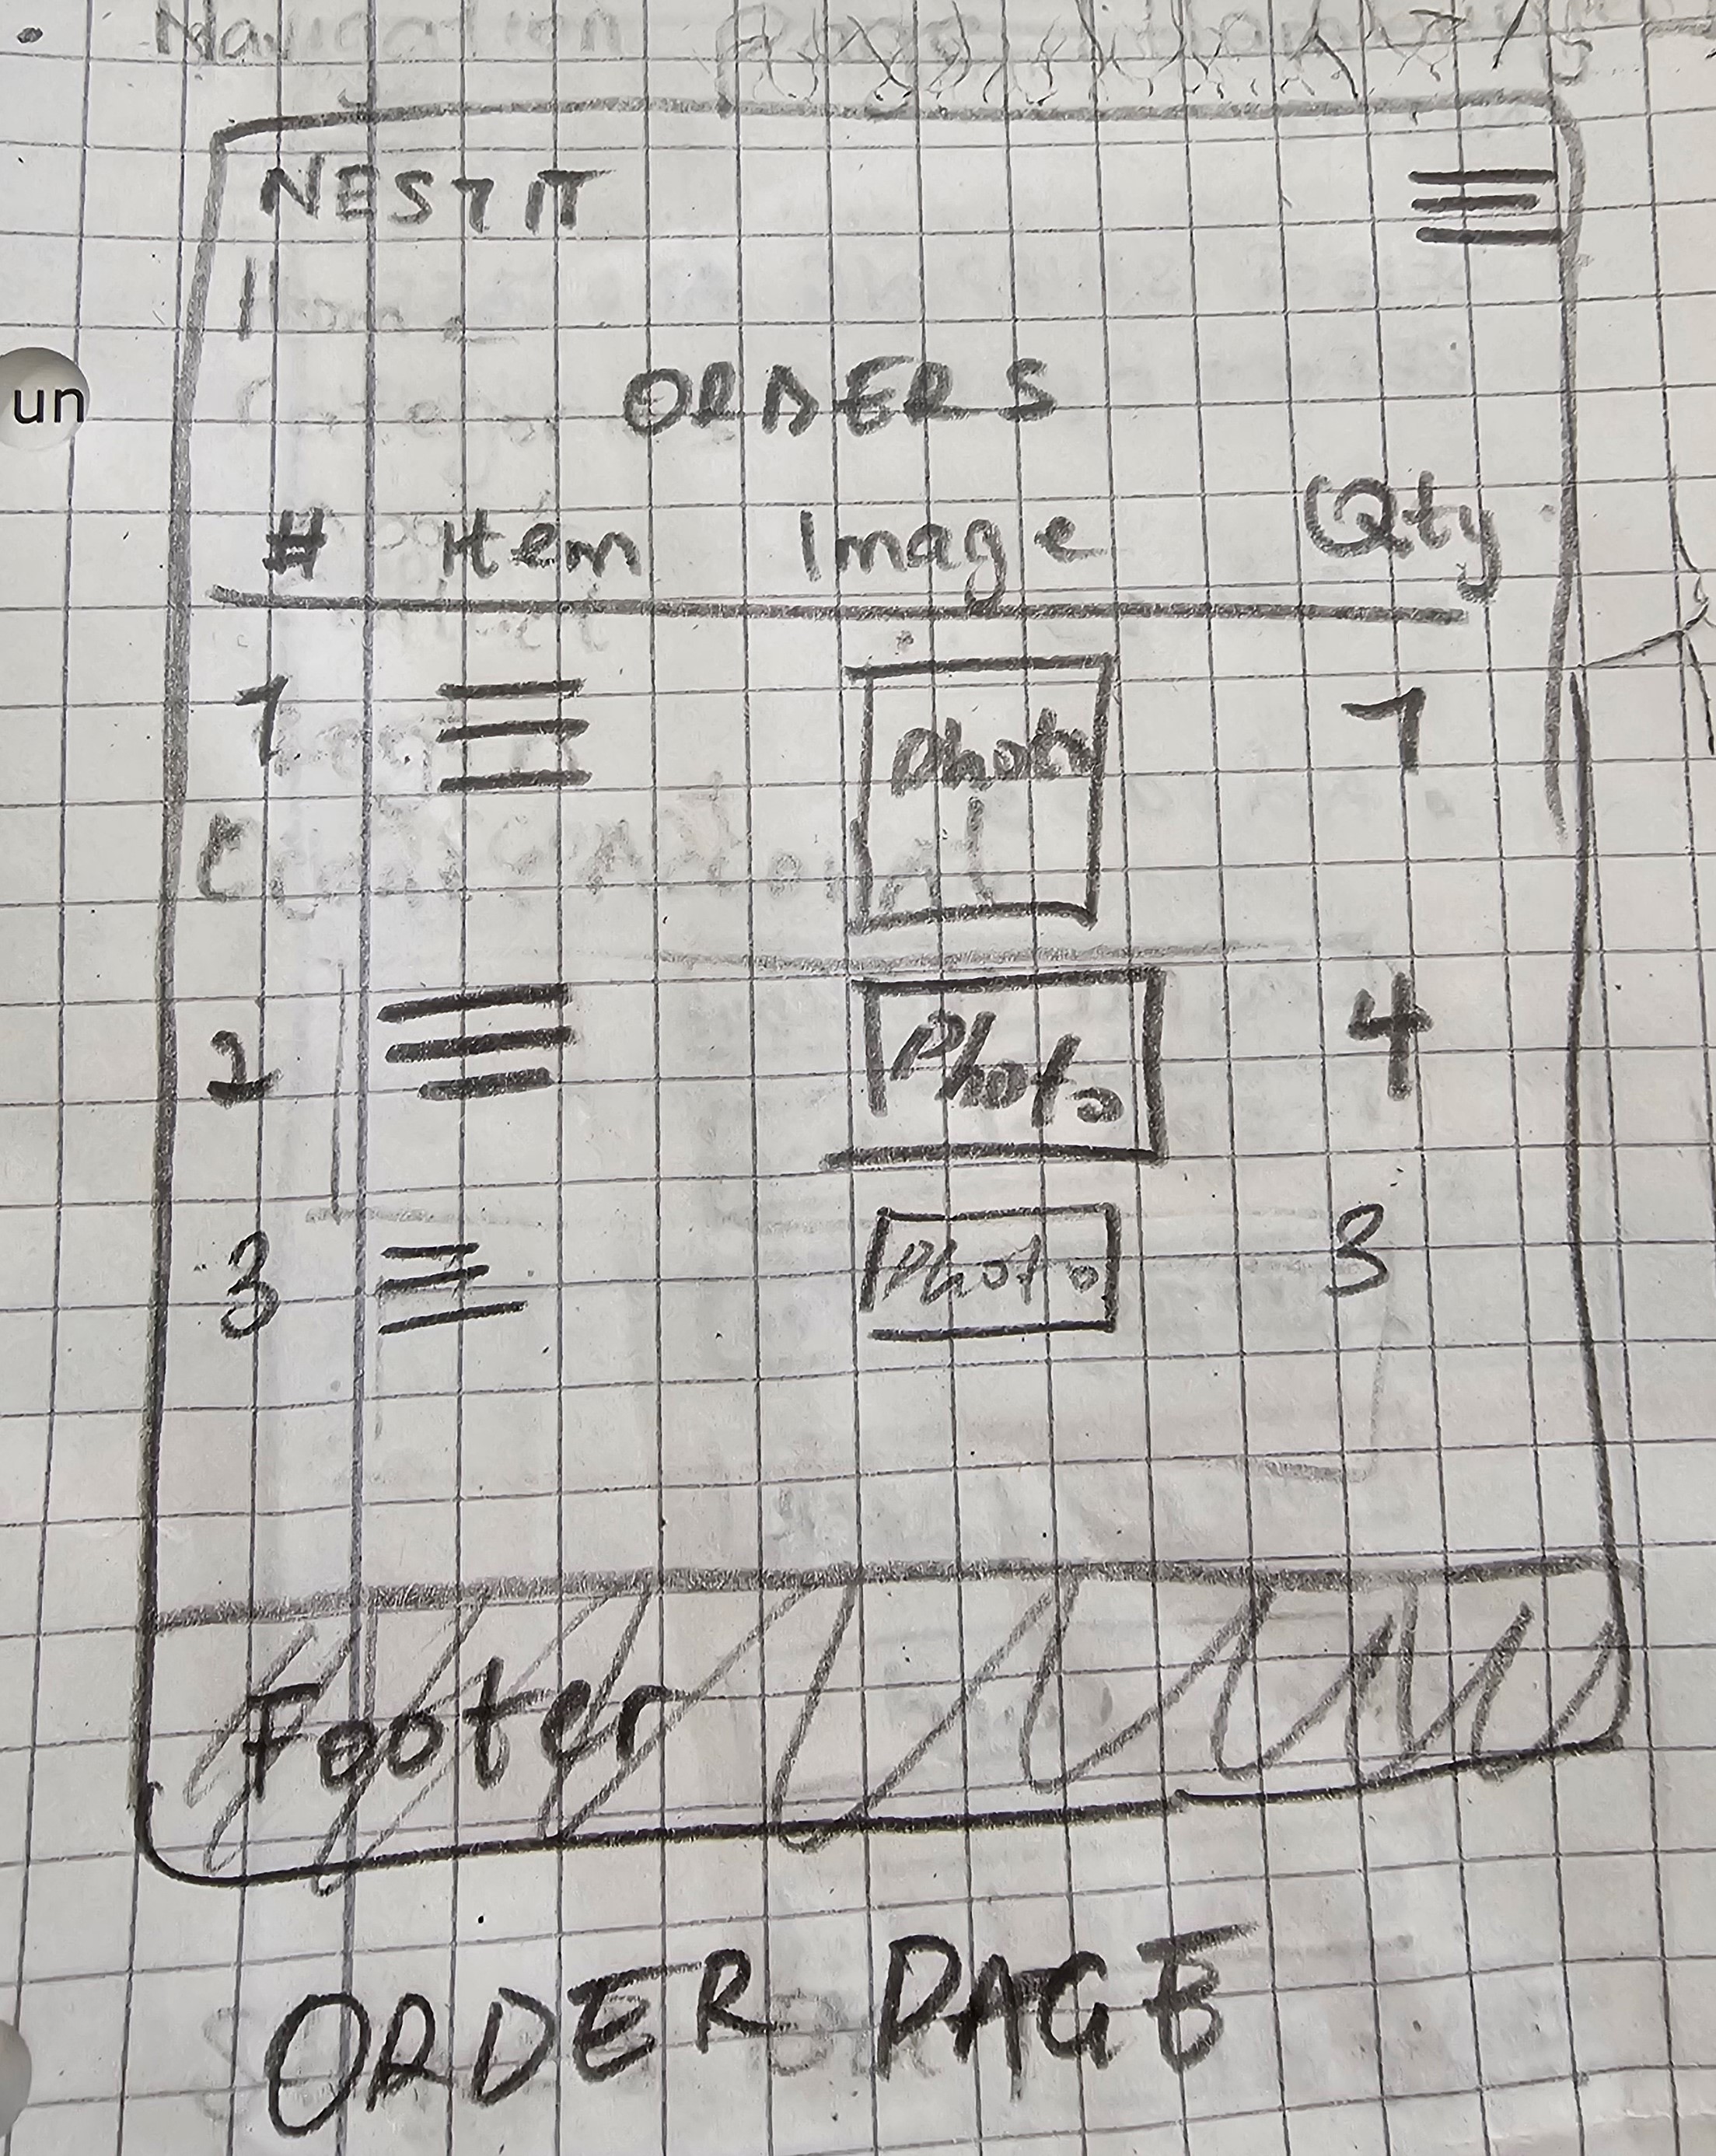 Navigation
NESTIT
Home
un
ORDERS
# Item Image Qty
1 Photo 1
2 Photo 4
3 Photo 3
Footer
ORDER PAGE